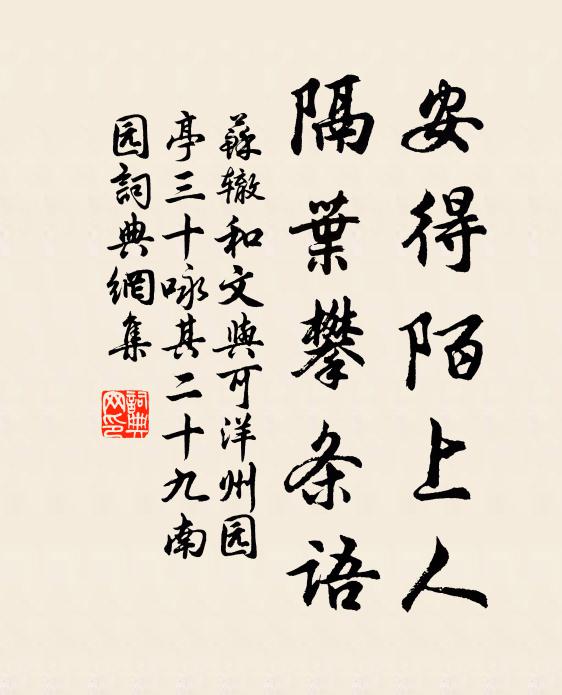 安得陌上人
隔葉攀条语
蘇辙和文與可洋州园
亭三十咏其二十九南
园詞典網集
詞典
网印